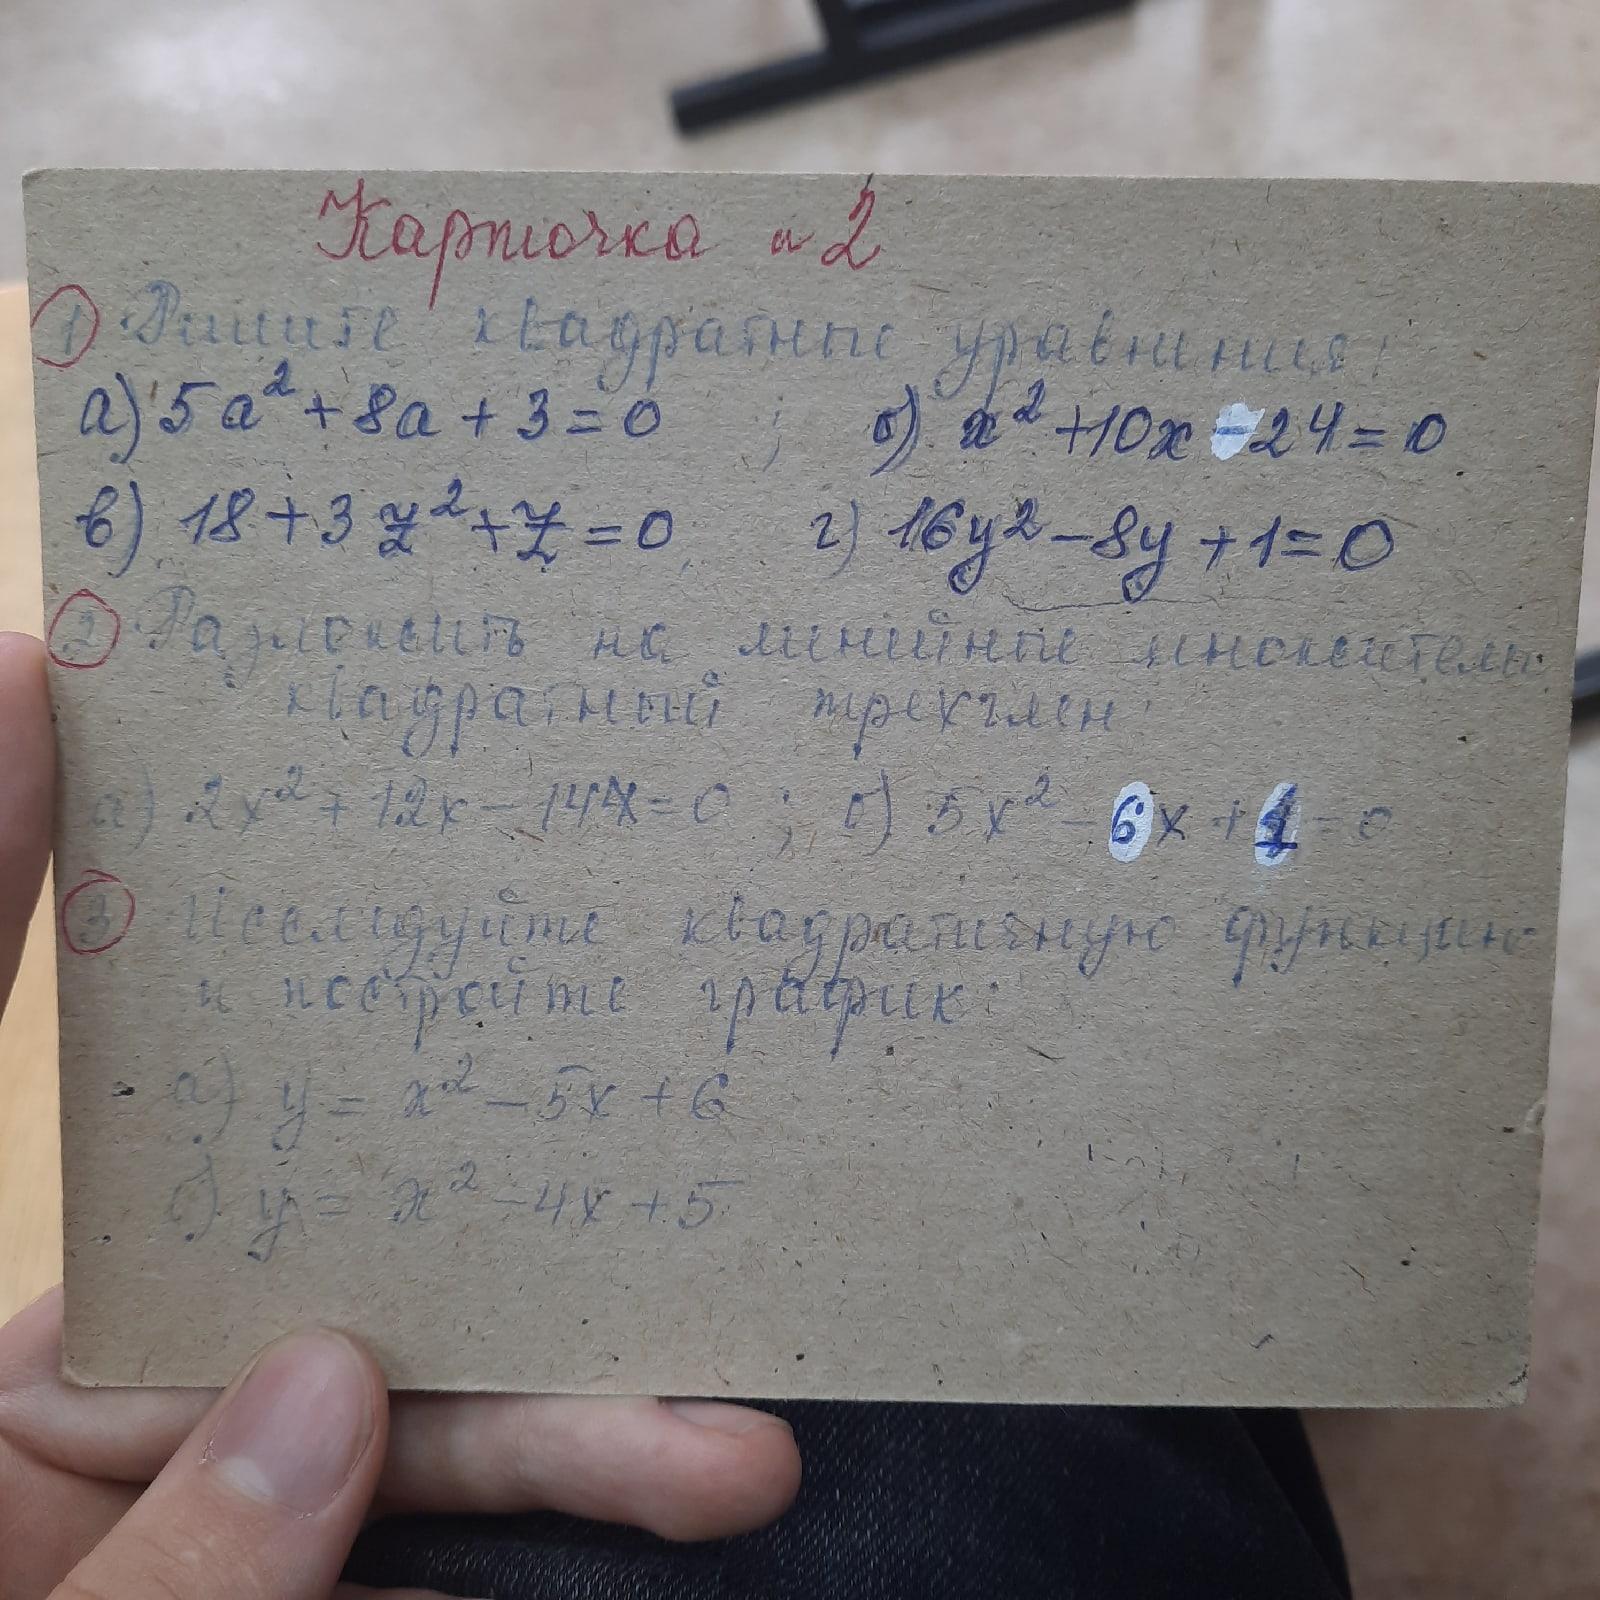 Карточка №2
1 Решите квадратные уравнения:
а) 5a² + 8a + 3 = 0 ; б) x² + 10x - 24 = 0
в) 18 + 3z² + z = 0 г) 16y² - 8y + 1 = 0
2 Разложить на линейные множители
квадратный трехчлен
а) 2x² + 12x - 144 = 0 ; б) 5x² - 6x + 1 = 0
3 Исследуйте квадратичную функцию
и постройте график:
а) y = x² - 5x + 6
б) y = x² - 4x + 5